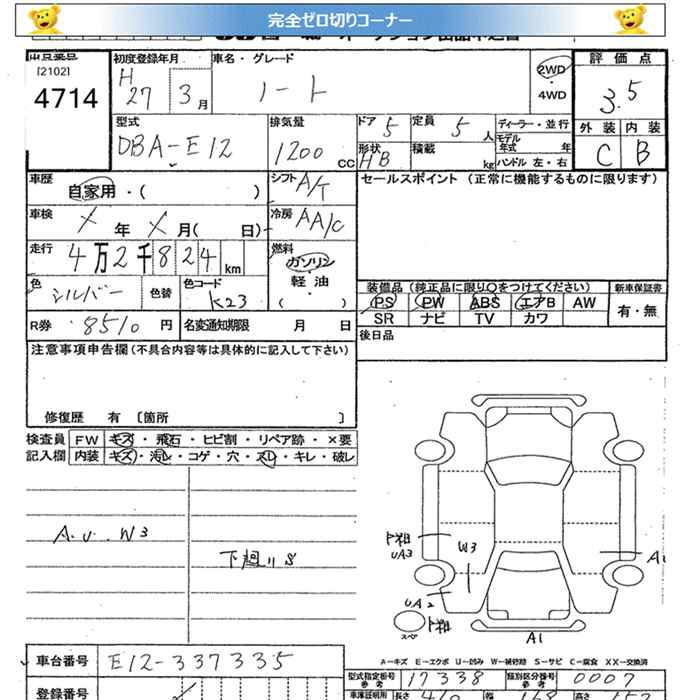 完全ゼロ切りコーナー
[2102]
4714
初度登録年月
H 27 3月
車名・グレード
ノート
2WD
・4WD
評価点
3.5
型式
DBA-E12
排気量
1200 cc
ドア 5
定員 5 人
ディーラー・並行
モデル年式 年
形状 HB
積載 kg
ハンドル 左・右
外装 内装
C B
車歴
自家用・( )
シフト A/T
セールスポイント(正常に機能するものに限ります)
車検
X 年 X 月( 日)
冷房 AA/C
走行
4万2千824km
燃料
ガソリン
軽油
( )
色
シルバー
色替
色コード
K23
装備品(純正品に限り○をつけてください)
新車保証書
PS PW ABS エアB AW
有・無
SR ナビ TV カワ
R券 8510 円
名変通知期限 月 日
後日品
注意事項申告欄(不具合内容等は具体的に記入して下さい)
修復歴 有 〔箇所 〕
検査員
FW キズ・飛石・ヒビ割・リペア跡・×要
記入欄
内装 キズ・汚レ・コゲ・穴・スレ・キレ・破レ
A.U.W3
下廻リS
UA3
W3
A1
UA2
スペア
A1
A=キズ E=エクボ U=凹み W=補修跡 S=サビ C=腐食 XX=交換済
車台番号
E12-337335
型式指定番号
参考
17338
類別区分番号
参考
0007
登録番号
車庫証明用
長さ 410
幅 168
高さ 152